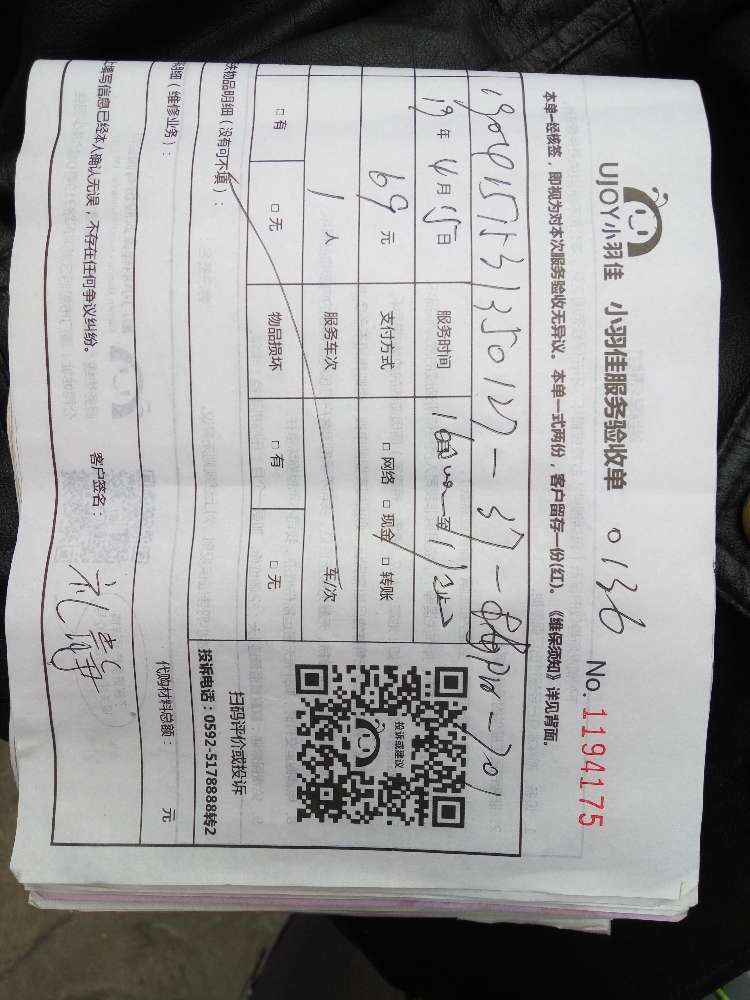 UJOY小羽佳 小羽佳服务验收单 0136 No.1194175
本单一经核签，即视为对本次服务验收无异议。本单一式两份，客户留存一份(红)。《维保须知》详见背面。
19年4月15日 服务时间 至
69元 支付方式 □网络 □现金 □转账
1人 服务车次 车/次
□有 □无 物品损坏 □有 □无
投诉或建议
扫码评价或投诉
投诉电话：0592-5178888转2
物品明细（没有可不填）：
明细（维修业务）： 代购材料总额： 元
填写信息已经本人确认无误，不存在任何争议纠纷。 客户签名：